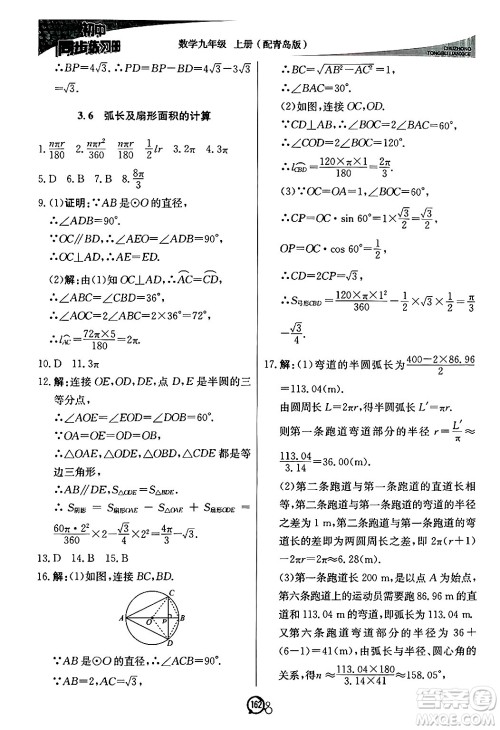 初中
同步练习册
数学九年级 上册（配青岛版）
CHUZHONG
TONGBULIANXICE
∴BP=4√3.∴PD=4√3.
3.6 弧长及扇形面积的计算
1. nπr/180 nπr²/360 1/2 lr 2. 4π 3. 2π 4. π
5. D 6. B 7. B 8. 8π/3
9. (1)证明:∵AB是⊙O的直径,
∴∠ADB=90°.
∵OC∥BD,∴∠AEO=∠ADB=90°.
∴OC⊥AD.
(2)解:由(1)知OC⊥AD,∴AC⌒=CD⌒.
∴∠ABC=∠CBD=36°.
∴∠AOC=2∠ABC=72°.
∴lAC⌒=72π×5/180=2π.
10. D 11. 3π
12. 解:连接OE,OD,DE,点D,E是半圆的三
等分点,
∴∠AOE=∠EOD=∠DOB=60°.
∵OA=OE=OD=OB,
∴△OAE,△ODE,△OBD,△CDE都是等
边三角形.
∴AB∥DE,S△ODE=S△BDE.
∴S阴影=S扇形OAE-S△OAE+S扇形ODE=
60π·2²/360×2-√3/4×2²=4/3π-√3.
13. D 14. D 15. B
16. 解:(1)如图,连接BC,BD.
C
A
O
P
B
D
∵AB是⊙O的直径,∴∠ACB=90°.
∴BC=√(AB²-AC²)=1.
∴∠BAC=30°.
(2)如图,连接OC,OD.
∵CD⊥AB,
∴∠CBD=2∠CBA=120°.
∴∠COD=2∠BOC=120°.
∴lCBD⌒=120×π×1/180=2/3π.
(3)∵OC=OA=1,∠BOC=60°,
∴CP=OC·sin 60°=1×√3/2=√3/2,
OP=OC·cos 60°=1/2.
∴CD=2CP=√3.
∴S弓形CBD=120×π×1²/360-1/2×√3×1/2=π/3-
√3/4.
17. 解:(1)弯道的半圆弧长为(400-2×86.96)/2
=113.04(m).
由圆周长L=2πr,得半圆弧长L′=πr,
则第一条跑道弯道部分的半径r=L′/π≈
113.04/3.14=36(m).
(2)第二条跑道与第一条跑道的直道长相
等,第二条跑道与第一条跑道的弯道半径
之差为1 m,第二条跑道与第一条跑道的
长的差等于即为两圆周长的差,即2π(r+
1)-2πr=2π≈6.28(m).
(3)第一条跑道长200 m,从起点开始,在
第六条跑道上的运动员员要跑86.96 m的直道和
113.04 m的弯道.
又第六条跑道弯道部分的半径为36+
(6-1)=41(m),由弧长与半径、圆心角的
关系,得n≈113.04×180/41π≈158.05°.
162
答案圈